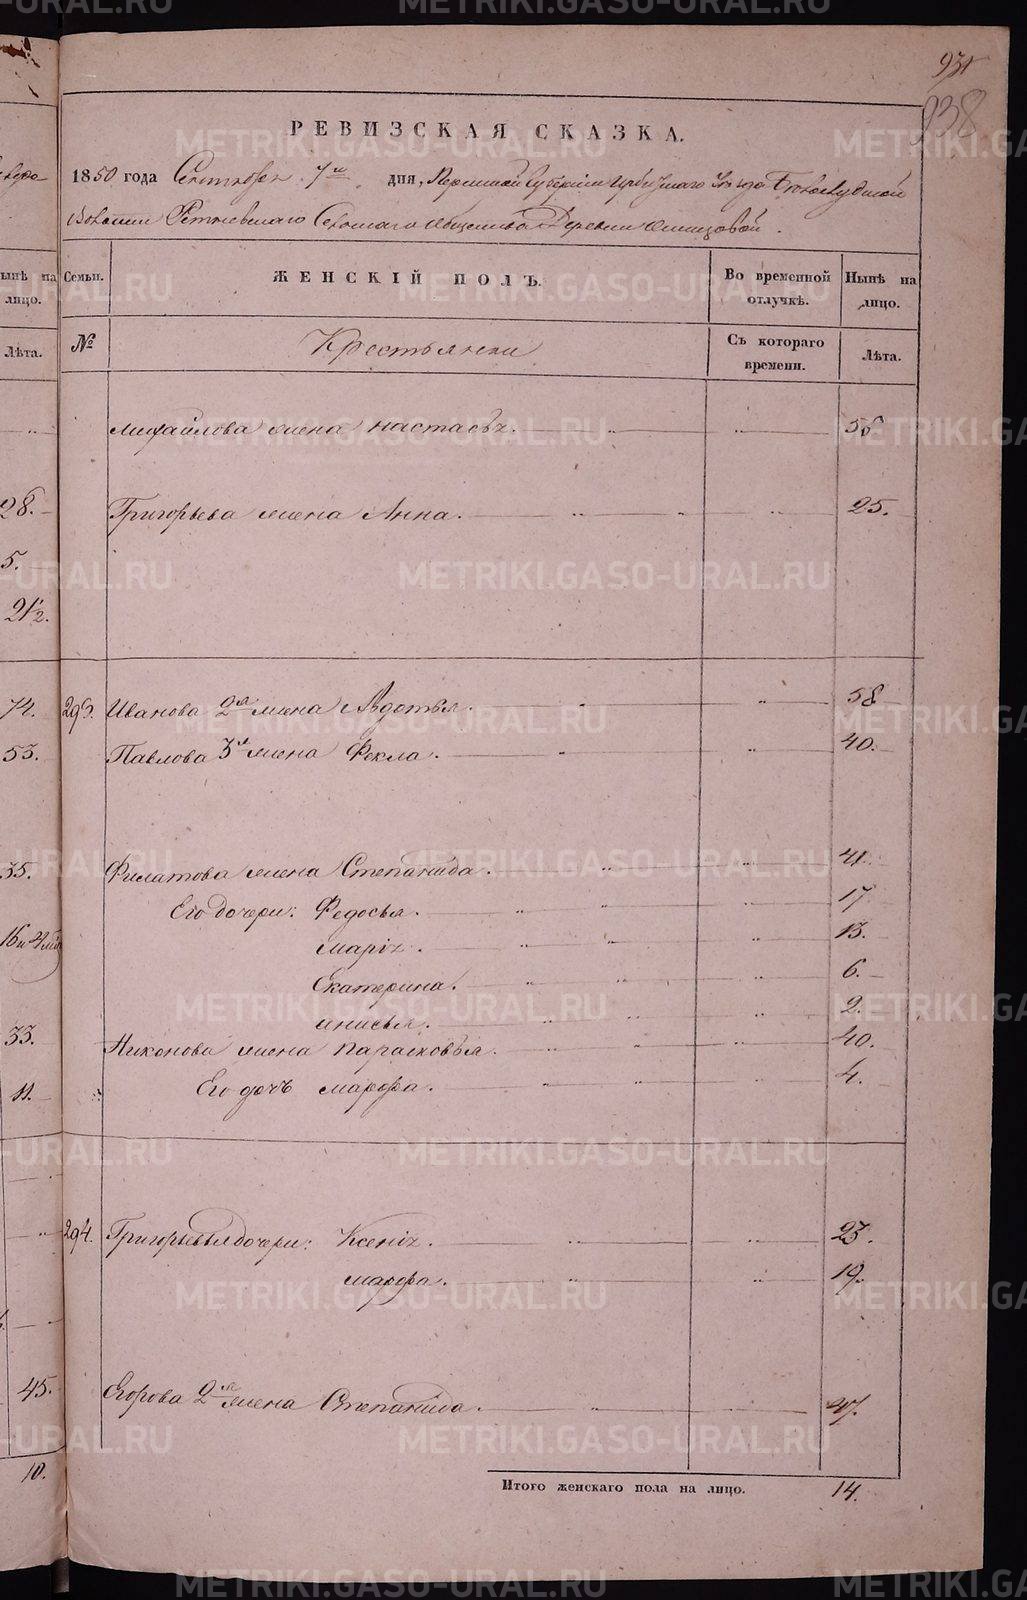 931
938
РЕВИЗСКАЯ СКАЗКА.
1850 года Сентября 7го дня, Пермской Губернiи Ирбитскаго Уѣзда Бѣлослудской
Волости Ретневскаго Сельскаго общества Деревни
Семьи. ЖЕНСКIЙ ПОЛЪ. Во временной отлучкѣ. Нынѣ на лицо.
№ Крестьянки Съ котораго времени. Лѣта.
Михайлова жена Настасья. 56
Григорьева жена Анна. 25.
293. Иванова 2я жена Авдотья. 58
Павлова 3я жена Фекла. 40.
Филатова жена Степанида. 41.
Его дочери: Федосья. 17
Марiя. 13.
Екатерина. 6.
Анисья. 2.
Никонова жена Парасковья. 40.
Его дочь Марфа. 4.
294. Григорьевы дочери: Ксенiя. 23.
Марфа. 19.
Егорова 2я жена Степанида. 47.
Итого женскаго пола на лицо. 14.
ынѣ на лицо.
Лѣта.
28.
5.
21/2.
74.
53.
35.
33.
11.
45.
10.
METRIKI.GASO-URAL.RU